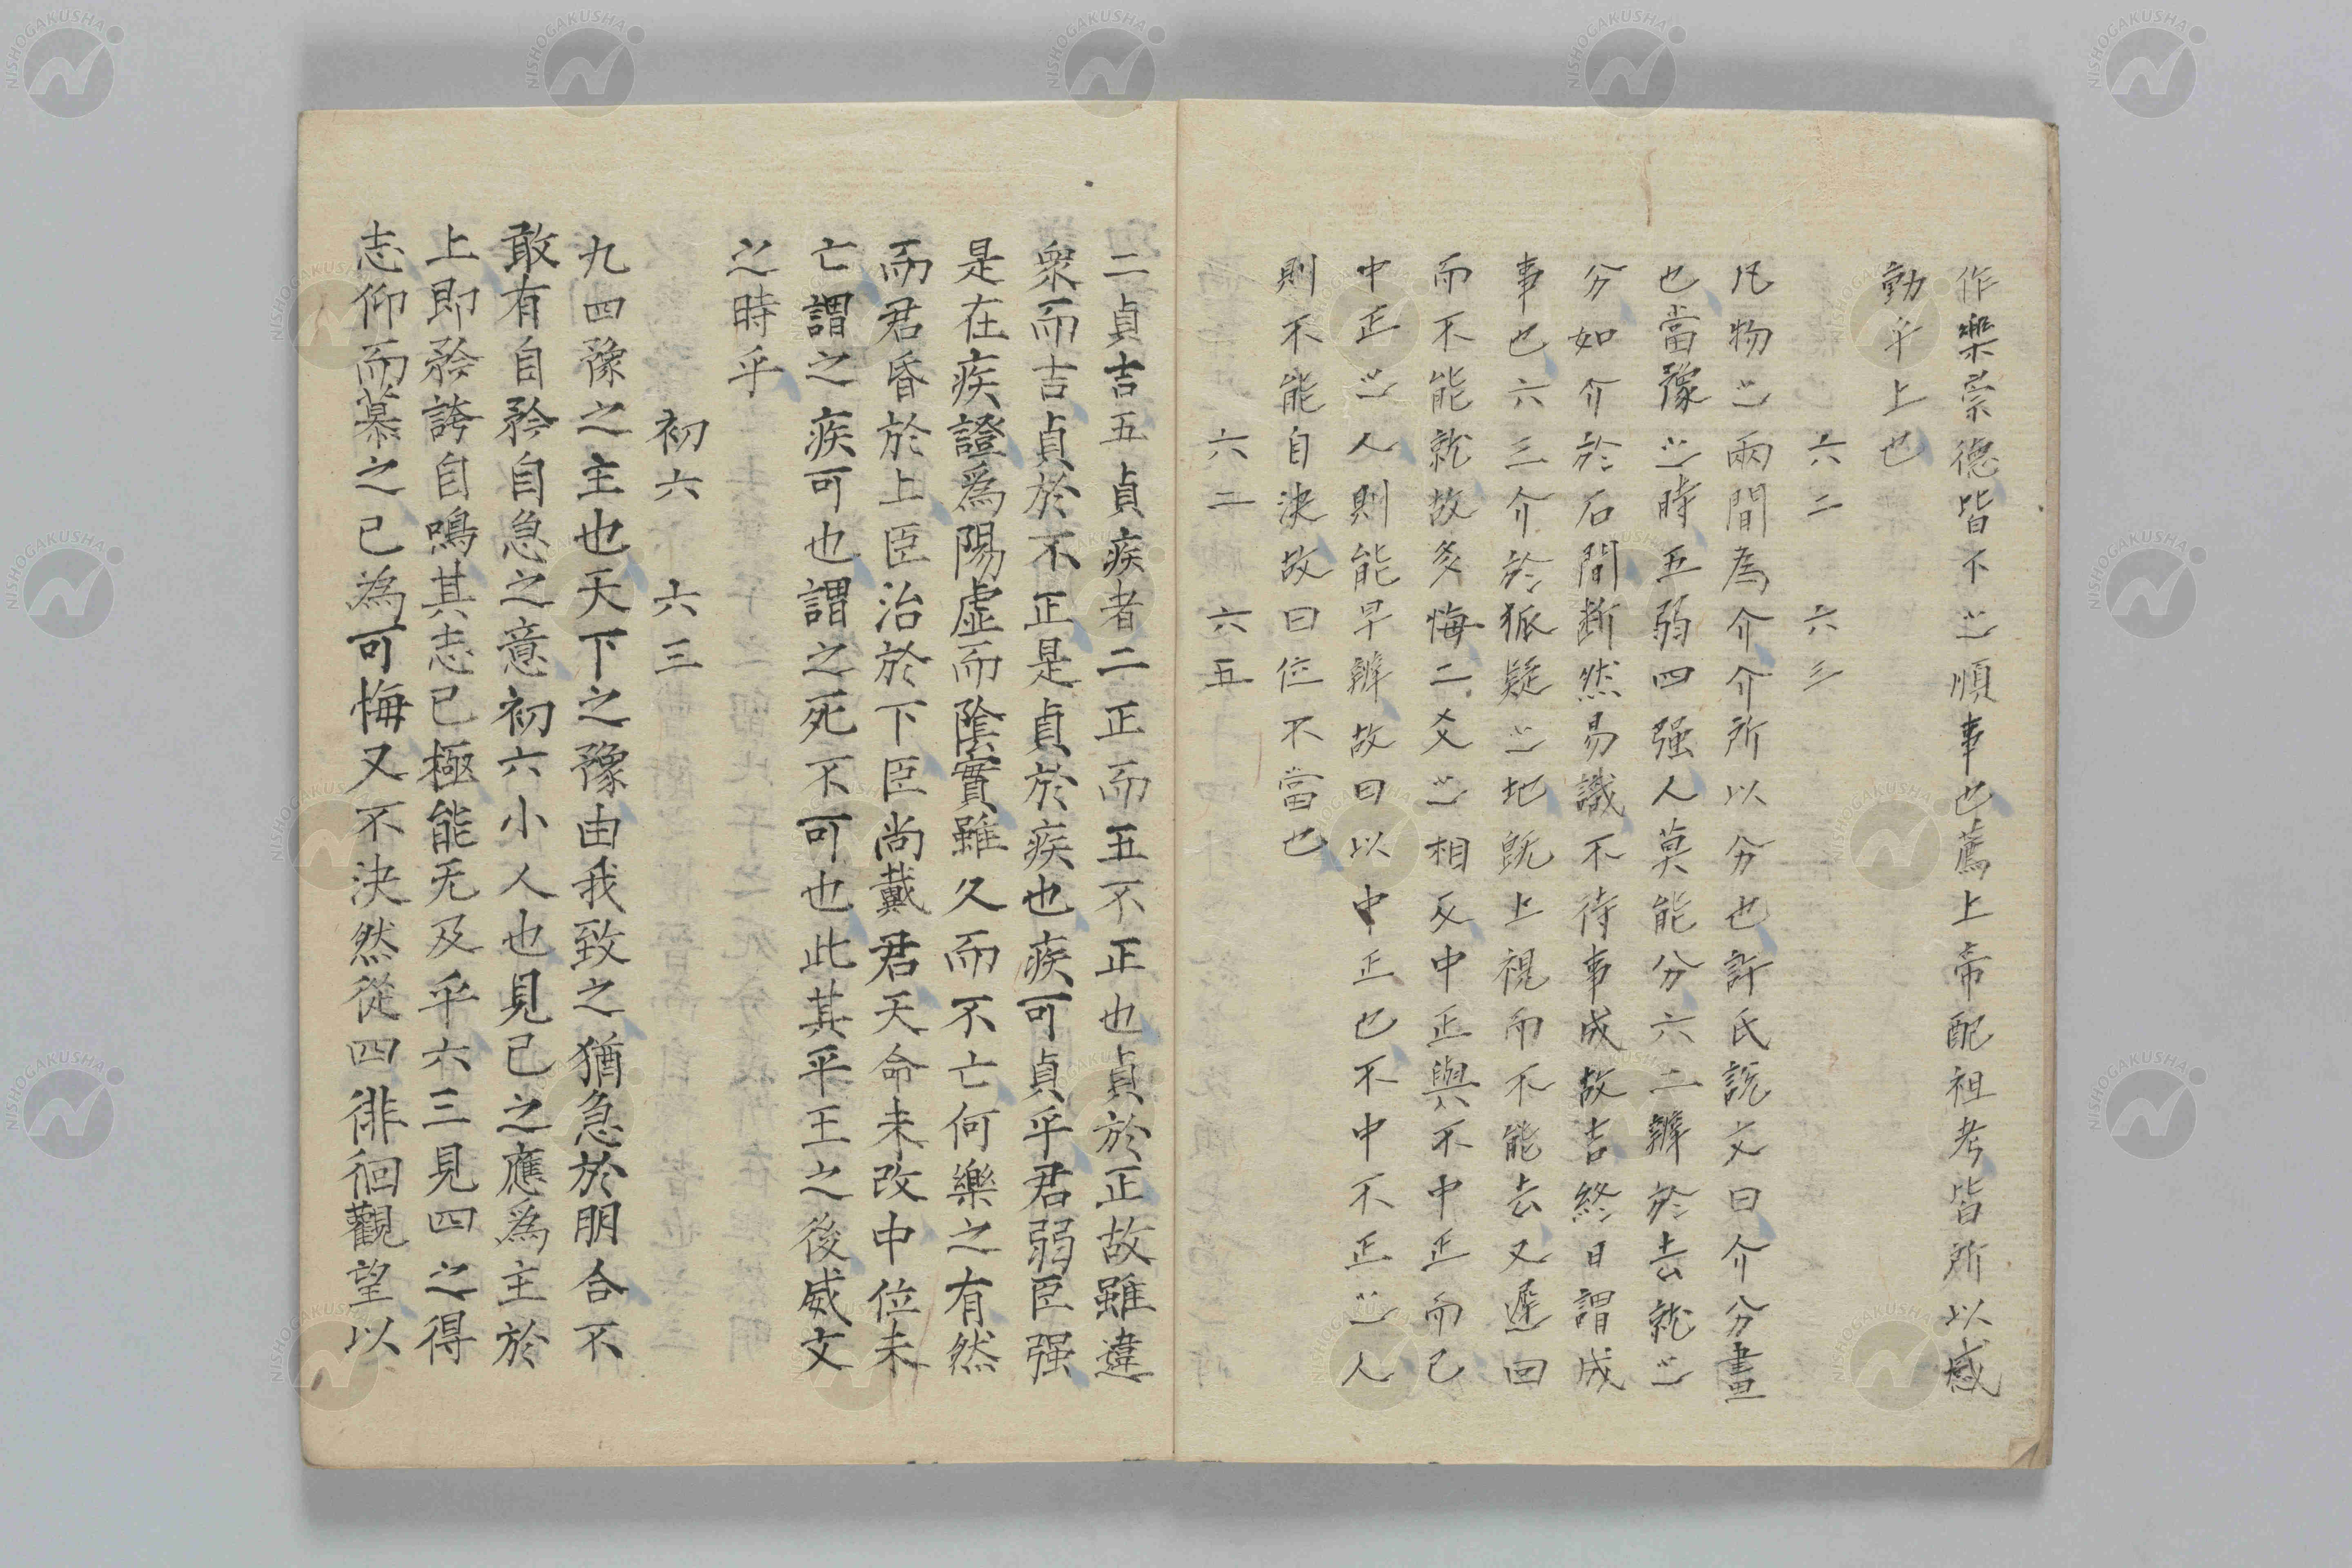 作樂崇德皆不之順事也薦上帝配祖考皆所以感
動乎上也
六二　六三
凡物之兩間為介介所以分也許氏說文曰介分畫
也當豫之時五弱四强人莫能分六二辨於去就之
分如介於石間斷然易識不待事成故吉終日謂成
事也六三介於狐疑之地既上視而不能去又遲回
而不能就故多悔二爻之相反中正與不中正而已
中正之人則能早辨故曰以中正也不中不正之人
則不能自決故曰位不當也
六二　六五
二貞吉五貞疾者二正而五不正也貞於正故雖違
衆而吉貞於不正是貞於疾也疾可貞乎君弱臣强
是在疾證爲陽虛而陰實雖久而不亡何樂之有然
而君昏於上臣治於下臣尚戴君天命未改中位未
亡謂之疾可也謂之死不可也此其平王之後威文
之時乎
初六　六三
九四豫之主也天下之豫由我致之猶急於朋合不
敢有自矜自急之意初六小人也見已之應爲主於
上即矜誇自鳴其志已極能无及乎六三見四之得
志仰而慕之已為可悔又不決然從四徘徊觀望以
NISHOGAKUSHA